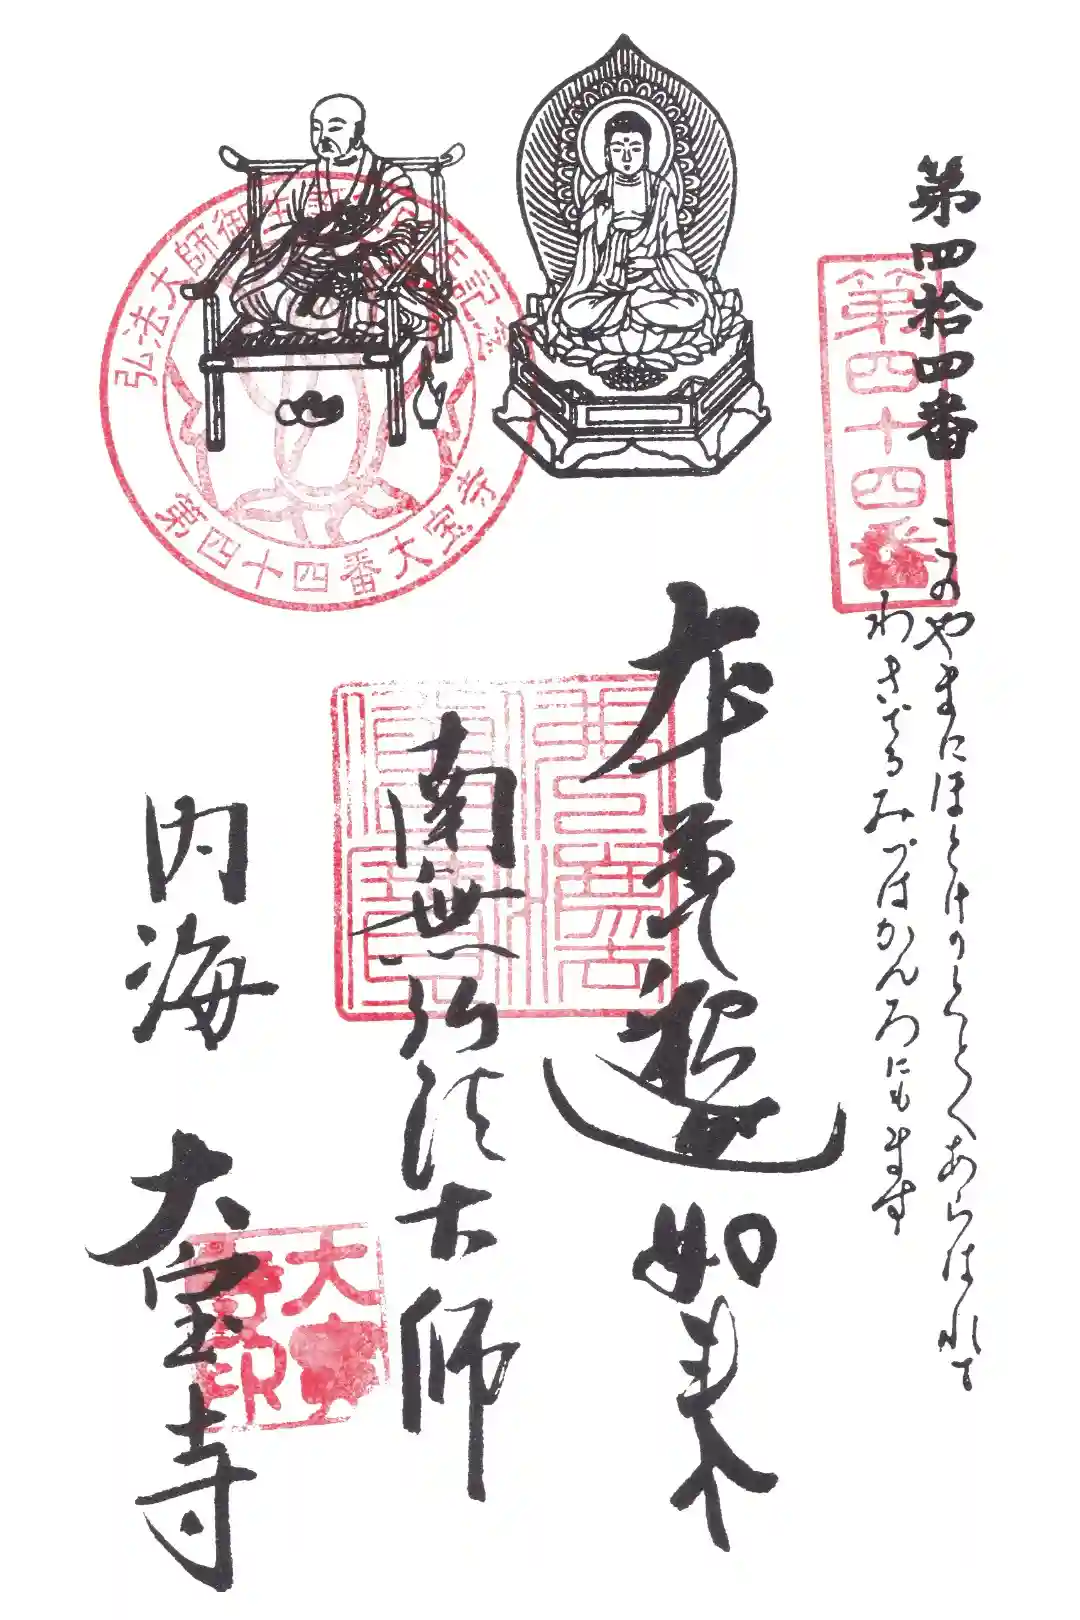 第四拾四番
第四十四番
このやまにほとけのくとくあらはれて
わきでるみづはかんろにもます
本尊釋迦如来
南無弘法大師
内海 大宝寺
弘法大師御生誕 年記念
第四十四番大宝寺
大宝寺印